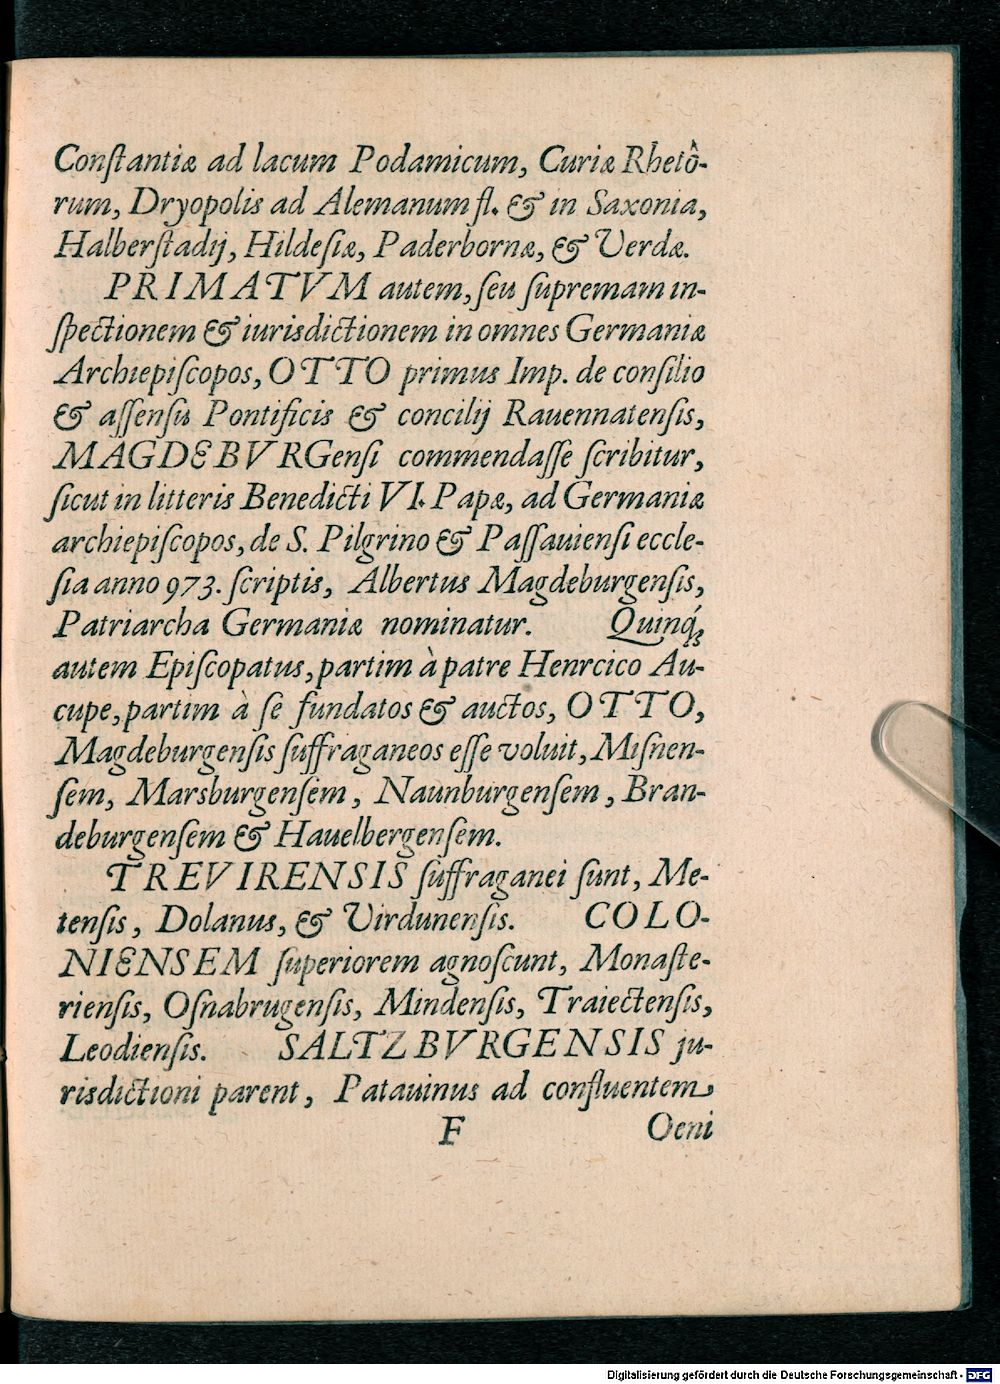 Conſtantiæ ad lacum Podamicum, Curiæ Rhetô-
rum, Dryopolis ad Alemanum fl. & in Saxonia,
Halberſtadij, Hildeſiæ, Paderbornæ, & Verdæ.
PRIMATVM autem, ſeu ſupremam in-
ſpectionem & iurisdictionem in omnes Germaniæ
Archiepiſcopos, OTTO primus Imp. de conſilio
& aſſenſu Pontificis & concilij Rauennatensis,
MAGDEBVRGenſi commendaſſe ſcribitur,
ſicut in litteris Benedicti VI. Papæ, ad Germaniæ
archiepiſcopos, de S. Pilgrino & Paſſauienſi eccle-
ſia anno 973. ſcriptis, Albertus Magdeburgenſis,
Patriarcha Germaniæ nominatur. Quinq́;
autem Epiſcopatus, partim à patre Henrcico Au-
cupe, partim à ſe fundatos & auctos, OTTO,
Magdeburgenſis ſuffraganeos eſſe voluit, Miſnen-
ſem, Marsburgenſem, Naunburgenſem, Bran-
deburgenſem & Hauelbergenſem.
TREVIRENSIS ſuffraganei ſunt, Me-
tenſis, Dolanus, & Virdunenſis. COLO-
NIENSEM ſuperiorem agnoſcunt, Monaſte-
rienſis, Oſnabrugenſis, Mindenſis, Traiectenſis,
Leodienſis. SALTZBVRGENSIS ju-
risdictioni parent, Patauinus ad confluentem
F Oeni
Digitalisierung gefördert durch die Deutsche Forschungsgemeinschaft - DFG